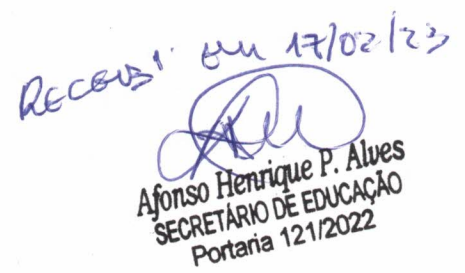 RECEBI em 17/02/23
Afonso Henrique P. Alves
SECRETÁRIO DE EDUCAÇÃO
Portaria 121/2022